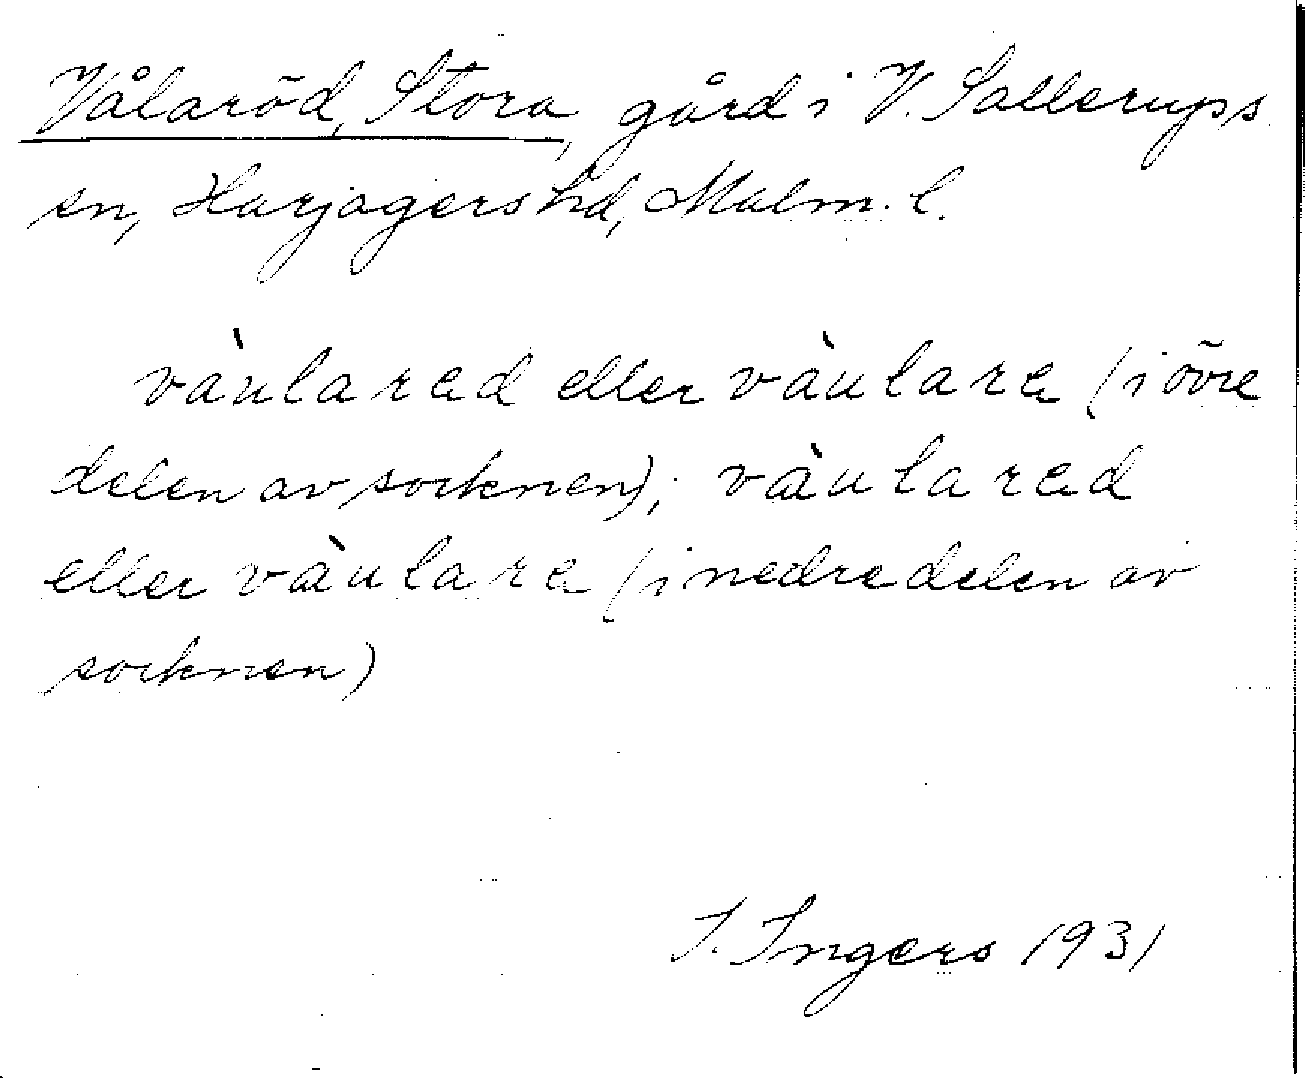 Vålaröd, Stora, gård i V. Sallerups
sn, Harjagers hd, Malm. l.
vàulared eller vàulare (i övre
delen av socknen); vàulared
eller vàulare (i nedre delen av
socknen)
I. Ingers 1931